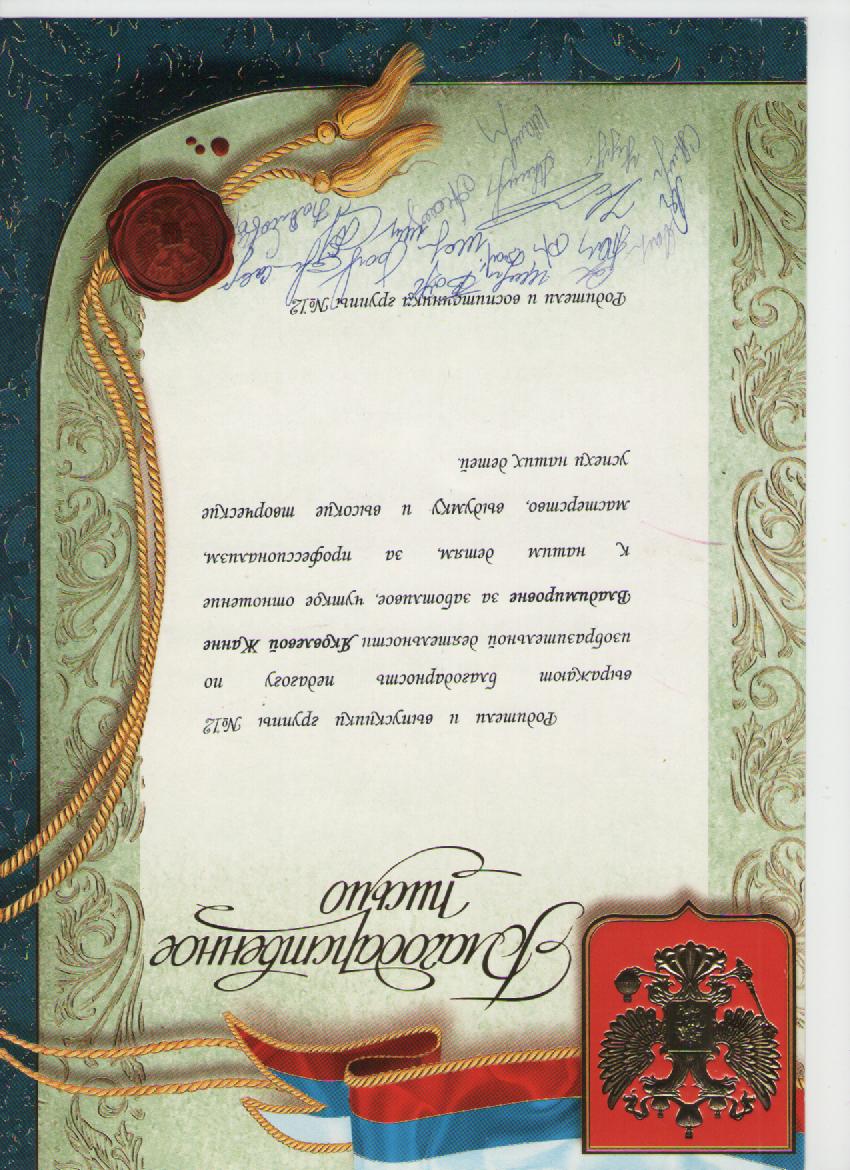 Благодарственное
письмо
Родители и выпускники группы №12
выражают благодарность педагогу по
изобразительной деятельности Яковлевой Жанне
Владимировне за заботливое, чуткое отношение
к нашим детям, за профессионализм,
мастерство, выдумку и высокие творческие
успехи наших детей.
Родители и воспитанники группы №12